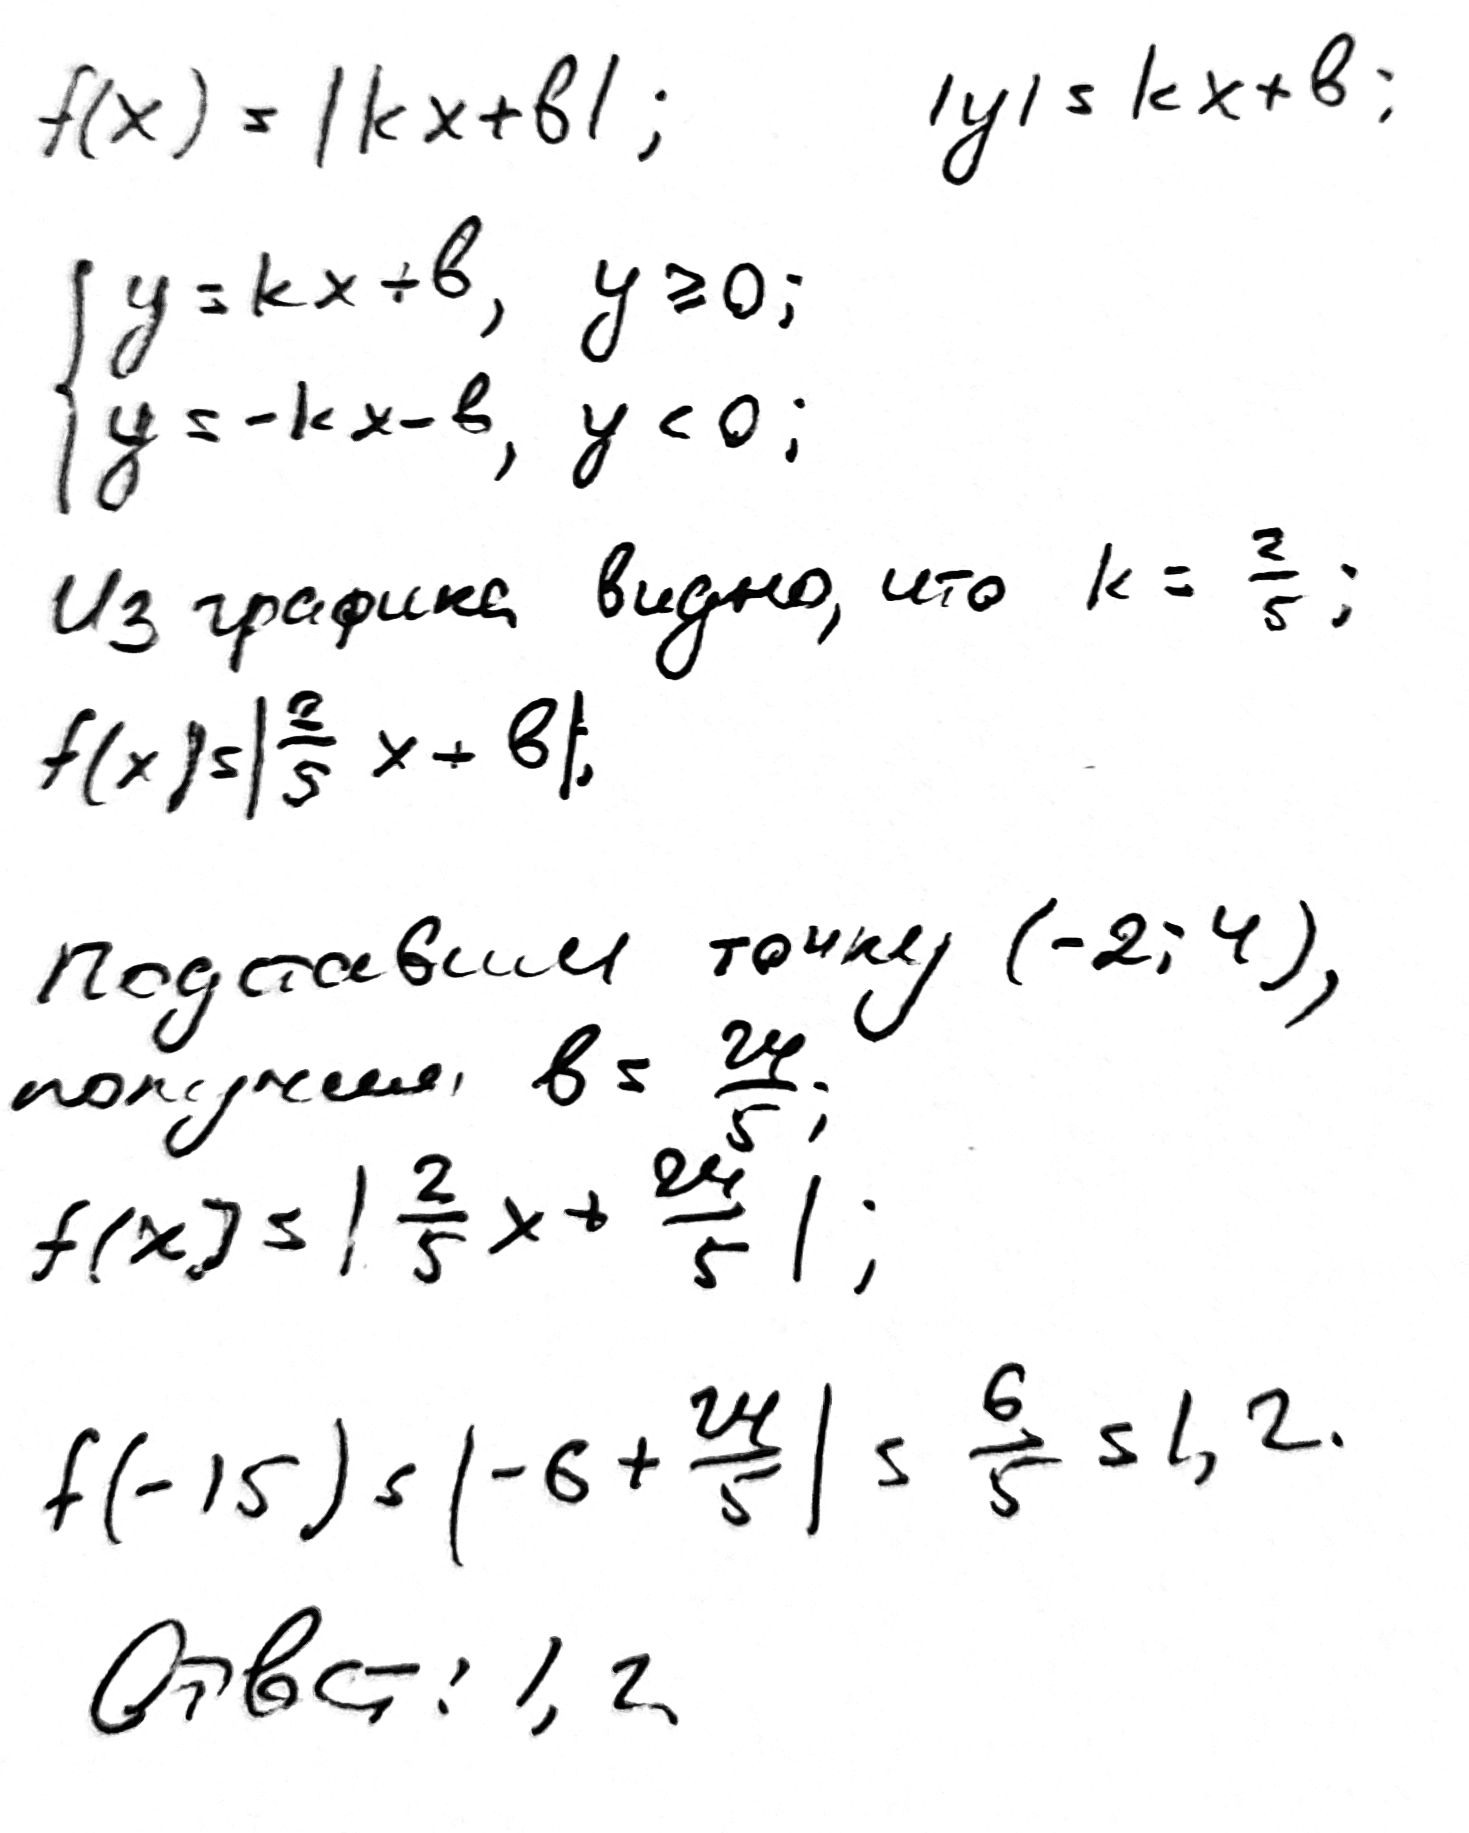 f(x) = |kx+b|; |y| = kx+b;
y = kx+b, y ≥ 0;
y = -kx-b, y < 0;
Из графика видно, что k = 2/5;
f(x) = |2/5 x + b|;
Подставим точку (-2; 4),
получим b = 24/5;
f(x) = |2/5 x + 24/5|;
f(-15) = |-6 + 24/5| = 6/5 = 1,2.
Ответ: 1,2